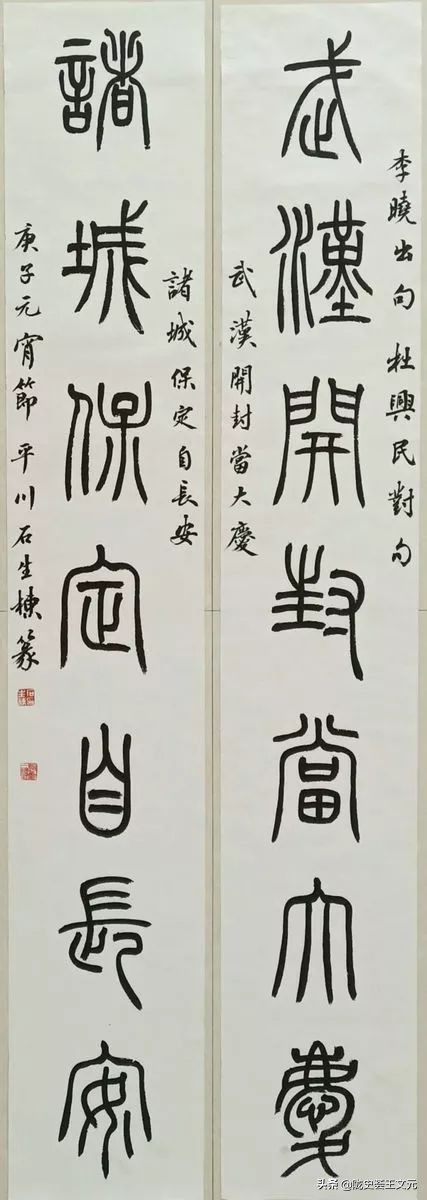 李曉出句 杜興民對句
武漢開封當大慶
武漢開封當大慶
諸城保定自長安
諸城保定自長安
庚子元宵節 平川石生棟篆
头条 @陇史荟王文元